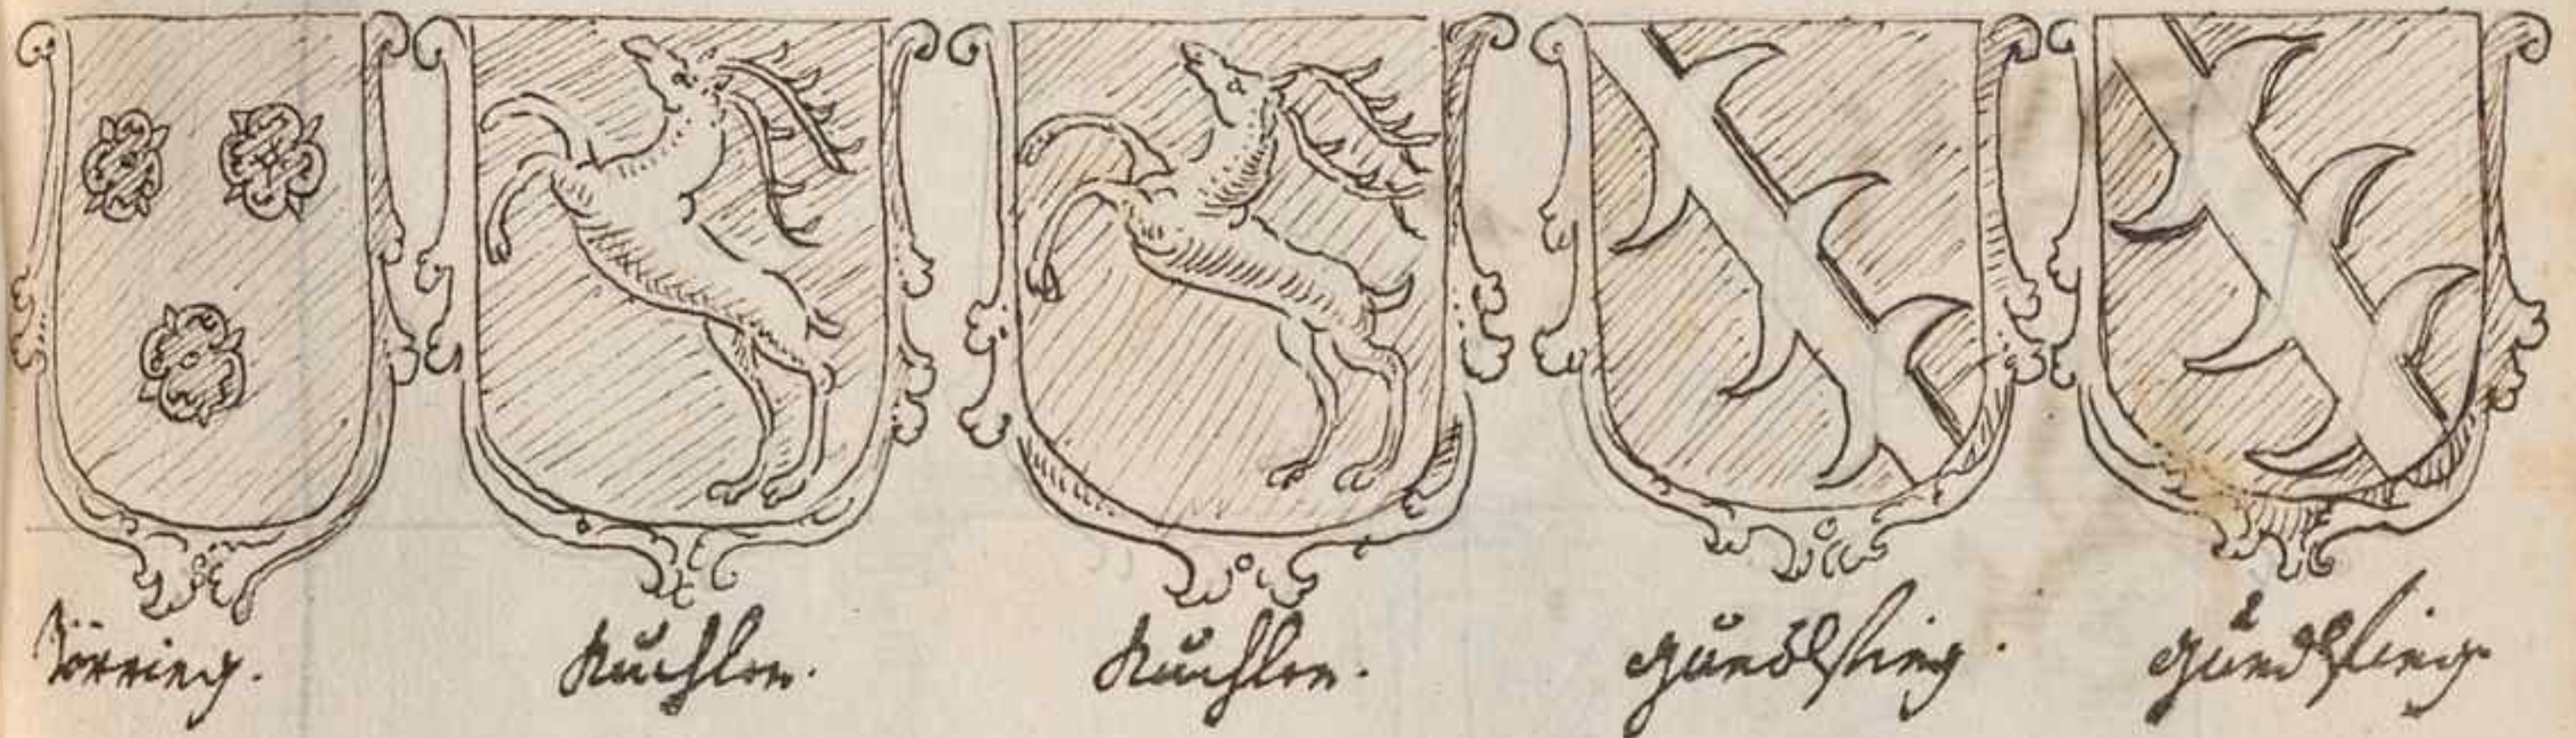 Törring. Kuchler. Kuchler. Gundlfing. Gundlfing.